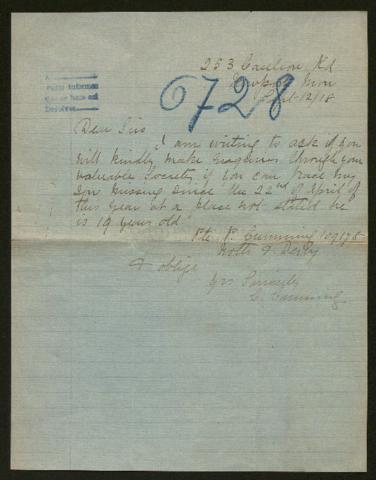 253 Caerleon Rd
Newport Mon
Sept-12/18
6728
Dear Sirs
I am writing to ask if you
will kindly make enquiries through your
valuable society if you can trace my
son missing since the 22nd of April of
this year at a place not stated he
is 19 years old
Pte P. Cumming 109178
Notts & Derby
& oblige
yrs Sincerely
C. Cumming